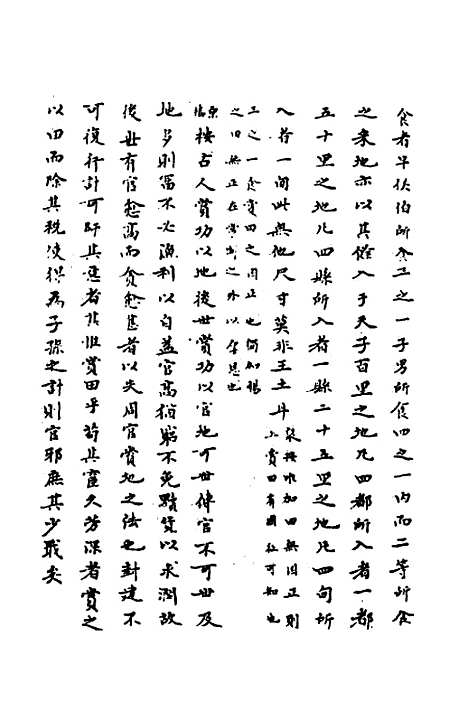 食者半侯伯所食三之一子男所食四之一内而二等所食
之采地亦以其餘入于天子百里之地凡四都所入者一都
五十里之地凡四縣所入者一縣二十五里之地凡四甸所
入者一甸此無他尺寸莫非王土耳
按唯加田無囯正則
上賞田有國征可知也
三之一食賞田之囯正也何加賜
之田無正在常制之外以厚恩也
臨按占人賞功以地後世賞功以官地可世傳官不可世及
地多則富不必漁利以自益官高猶窮不免黷貨以求潤故
後世有官愈高而貪愈甚者以失周官賞地之法也封建不
可復行計可師其意者其惟賞田乎苟其宦久勞深者賞之
以田而除其税使得為子孫之計則官邪庶其少戢矣